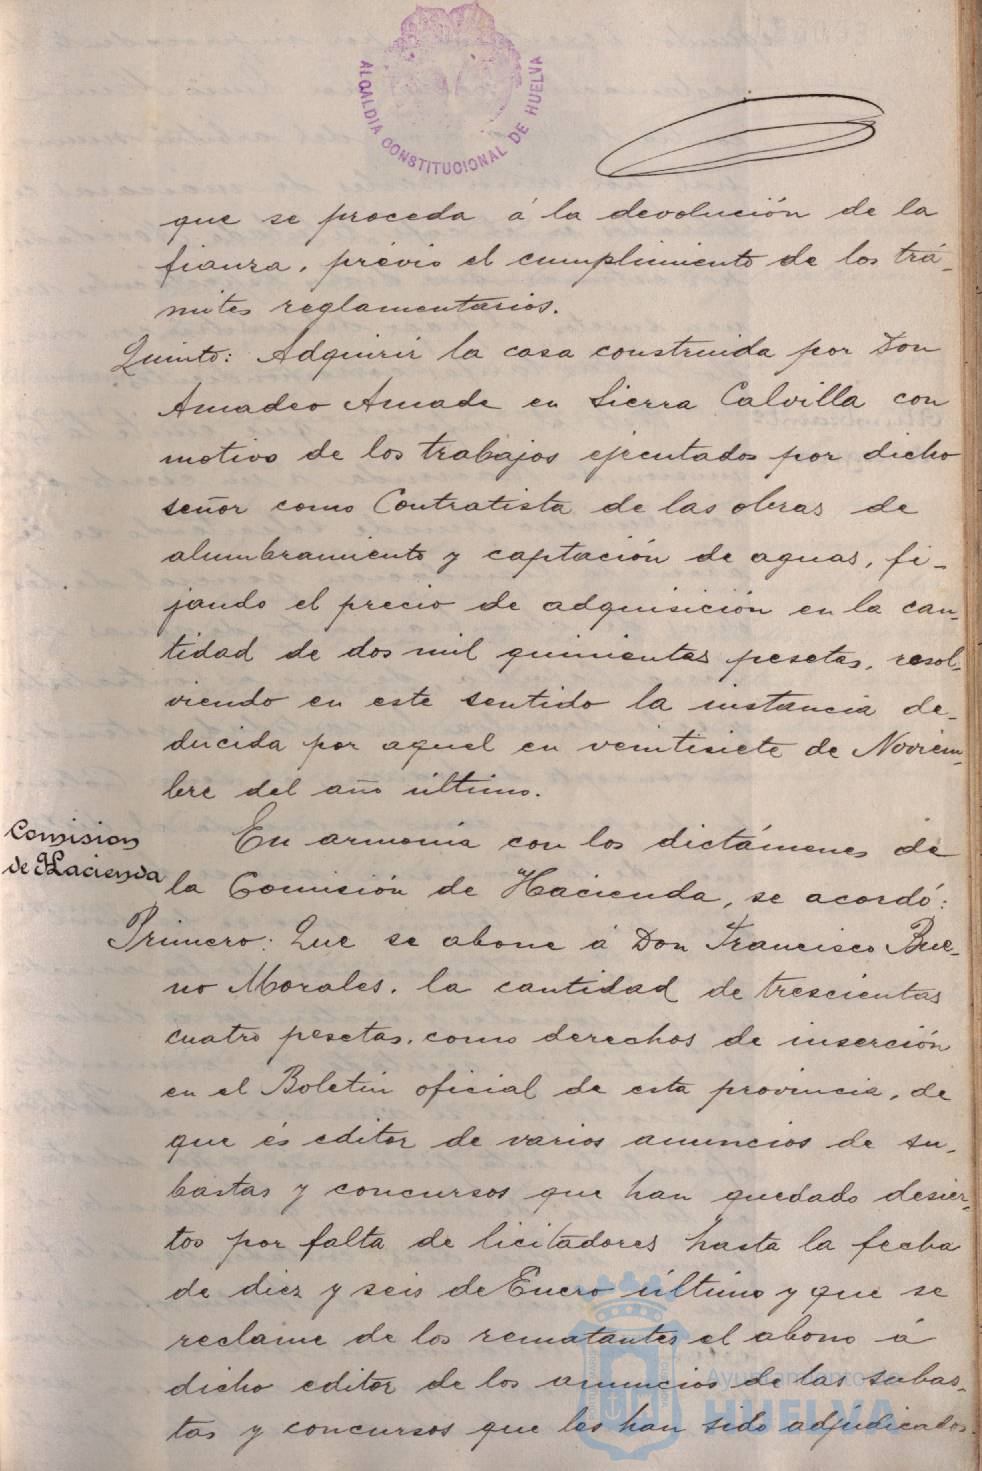 ALCALDIA CONSTITUCIONAL DE HUELVA
que se proceda á la devolución de la
fianza, prévio el cumplimiento de los trá-
mites reglamentarios.
Quinto: Adquirir la casa construida por Don
Amadeo Amade en Sierra Calvilla con
motivo de los trabajos ejecutados por dicho
señor como Contratista de las obras de
alumbramiento y captación de aguas, fi-
jando el precio de adquisición en la can-
tidad de dos mil quinientas pesetas, resol-
viendo en este sentido la instancia de-
ducida por aquel en veintisiete de Noviem-
bre del año último.
Comision
de Hacienda
En armonía con los dictámenes de
la Comisión de Hacienda, se acordó:
Primero: Que se abone á Don Francisco Bue-
no Morales, la cantidad de trescientas
cuatro pesetas, como derechos de inserción
en el Boletin oficial de esta provincia, de
que és editor de varios anuncios de su-
bastas y concursos que han quedado desier-
tos por falta de licitadores hasta la fecha
de diez y seis de Enero último y que se
reclame de los rematantes el abono á
dicho editor de los anuncios de las subas-
tas y concursos que les han sido adjudicados
Ayuntamiento
HUELVA